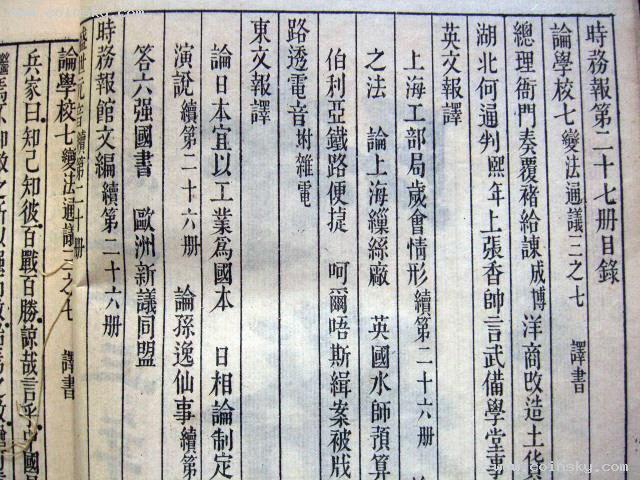 時務報第二十七册目錄
論學校七 變法通議三之七 譯書
總理衙門奏覆褚給諫成博 洋商改造土貨
湖北何通判熙年上張香帥言武備學堂事
英文報譯
上海工部局歲會情形 續第二十六册
之法 論上海繅絲廠 英國水師預算
伯利亞鐵路便捷 呵爾唔斯緝案被戕
路透電音 附雜電
東文報譯
論日本宜以工業爲國本 日相論制定
演說 續第二十六册 論孫逸仙事 續第
答六强國書 歐洲新議同盟
時務報館文編 續第二十六册
盛世元音 續第二十册
論學校七 變法通議三之七 譯書
兵家曰知己知彼百戰百勝諒哉言乎中國
www.coinsky.com